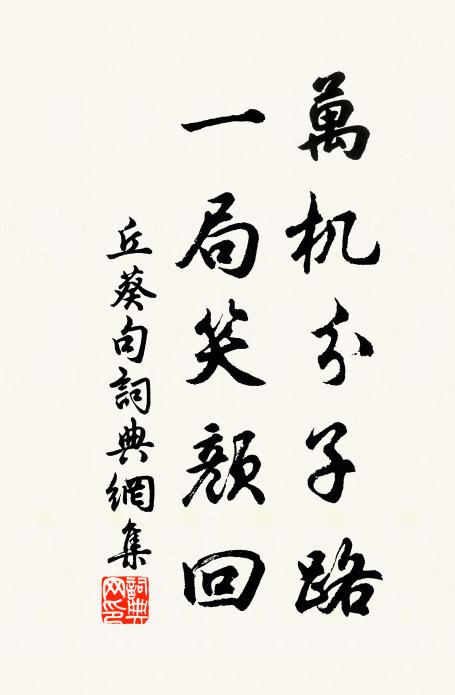 萬机分子路
一局笑顔回
丘葵句詞典網集
詞典網印